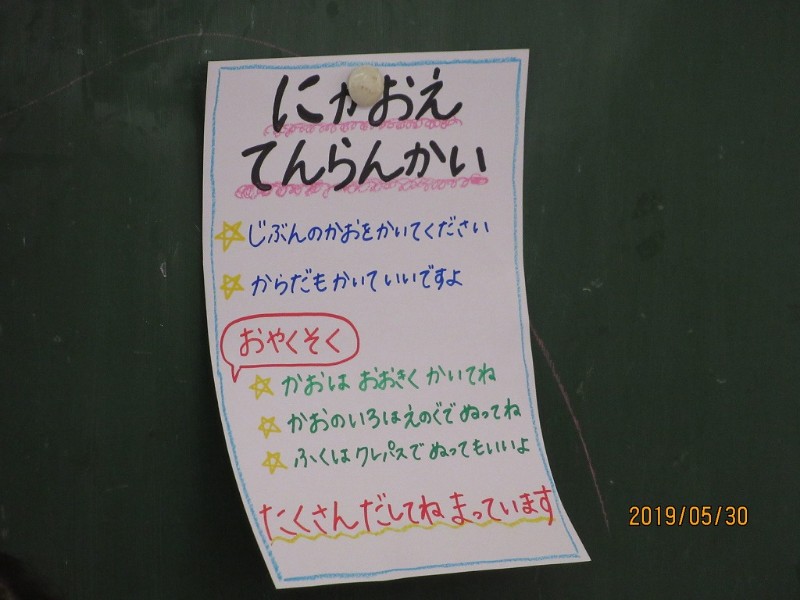 にがおえ
てんらんかい
じぶんのかおをかいてください
からだもかいていいですよ
おやくそく
かおは おおきく かいてね
かおのいろはえのぐでぬってね
ふくはクレパスでぬってもいいよ
たくさんだしてね まっています
2019/05/30